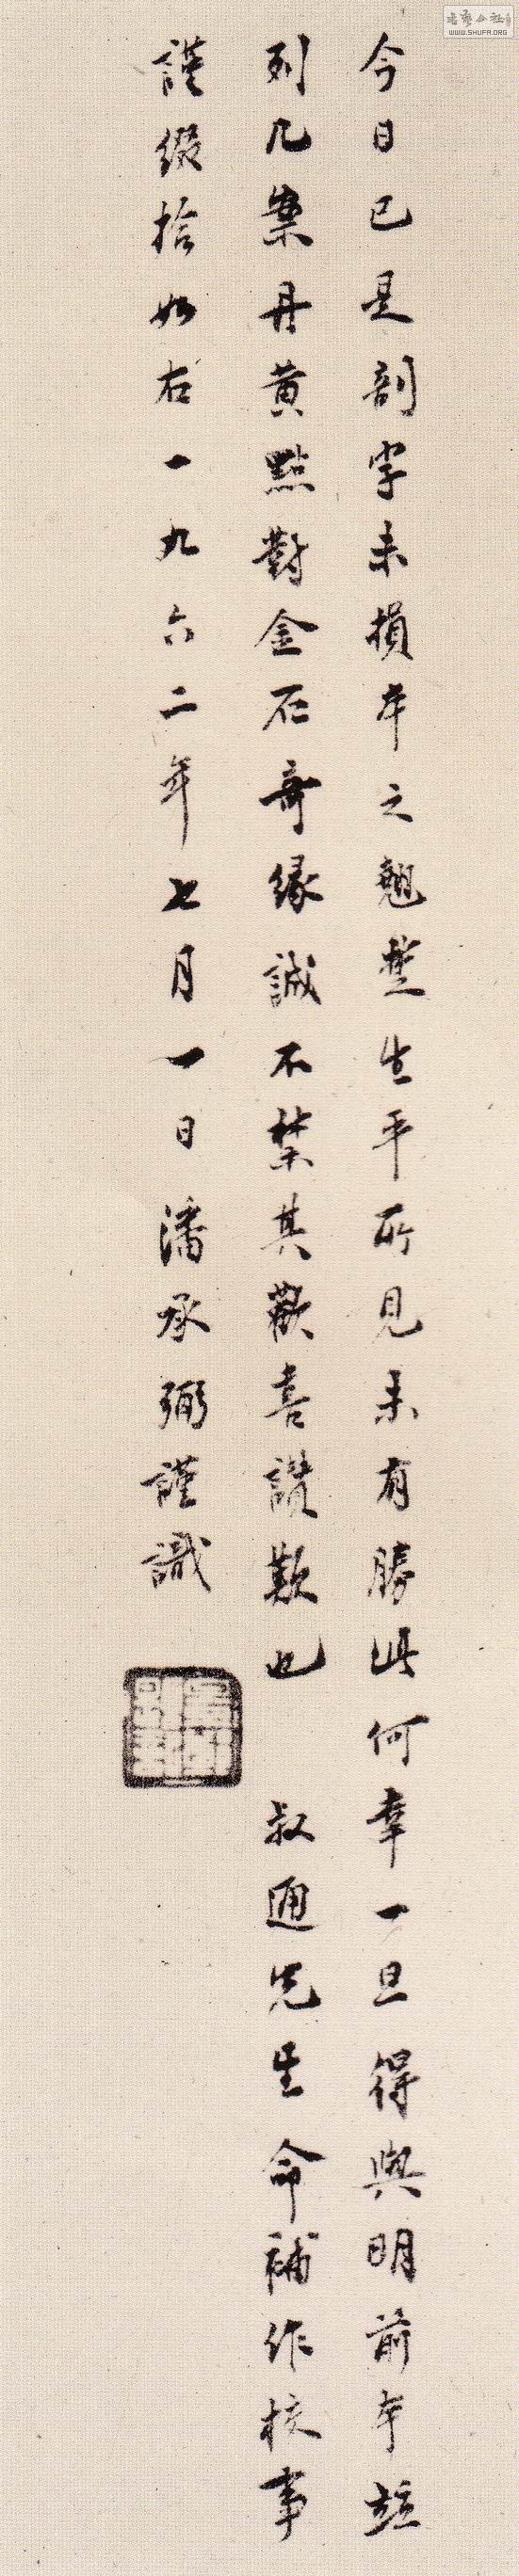 今日已是剖字未損本之翹楚生平所見未有勝此何幸一旦得與明前本竝
列几案丹黄點對金石奇緣誠不禁其歡喜讚歎也 叔通先生命補作校事
謹綴拾如右一九六二年七月一日潘承弼謹識
WWW.SHUFA.ORG